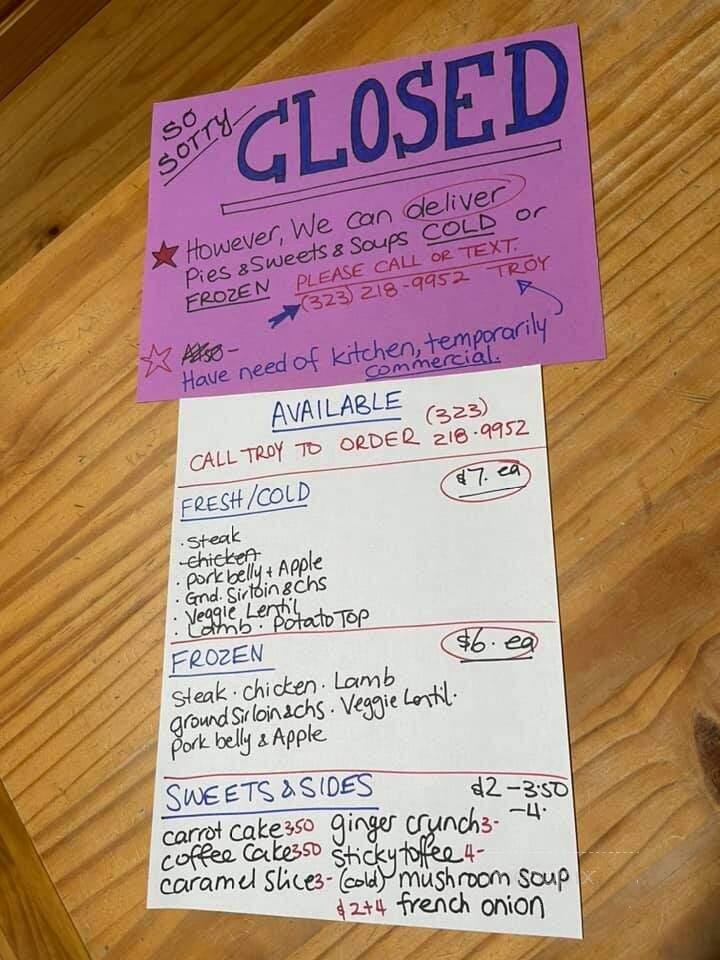 SO
SORRY
CLOSED
However, We can deliver
Pies & Sweets & Soups COLD or
FROZEN PLEASE CALL OR TEXT.
(323) 218-9952 TROY
Have need of kitchen, temporarily
commercial.
AVAILABLE
CALL TROY TO ORDER (323)
218.9952
FRESH/COLD $7. ea
· Steak
· chicken
· Pork belly + Apple
· Gnd. Sirloin & Chs
· Veggie Lentil
· Lamb · Potato Top
FROZEN $6. ea
Steak · chicken · Lamb
ground Sirloin & chs · Veggie Lentil ·
Pork belly & Apple
SWEETS & SIDES $2 - 3.50
- 4.
carrot cake 350 ginger crunch 3-
coffee Cake 350 sticky toffee 4-
caramel slice 3- (cold) mushroom soup
$2+4 french onion